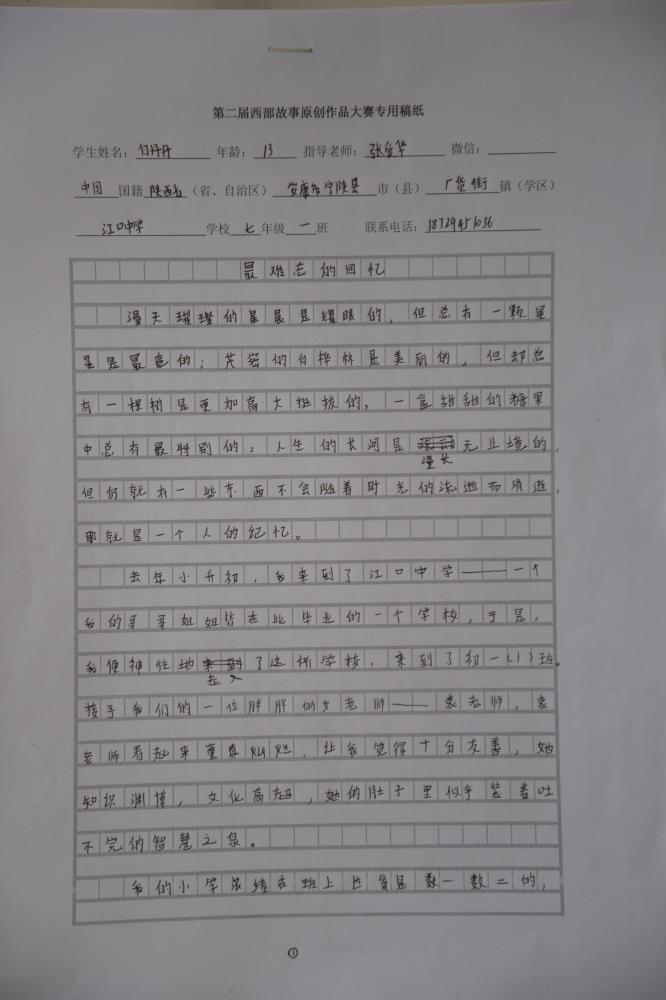 第二届西部故事原创作品大赛专用稿纸
学生姓名：付丹丹 年龄：13 指导老师：张金华 微信：
中国 国籍 陕西省（省、自治区） 安康市宁陕县 市（县） 广货街 镇（学区）
江口中学 学校 七 年级 一 班 联系电话：18729451036
最难忘的回忆
漫天璀璨的星晨是耀眼的，但总有一颗星
星是最亮的；茂密的白桦林是美丽的，但却总
有一棵树是更加高大挺拔的，一盒甜甜的糖果
中总有最特别的；人生的长河是漫长无止境的，
但仍就有一些东西不会随着时光的流逝而消逝，
那就是一个人的纪忆。
去年小升初，我来到了江口中学——一个
我的哥哥姐姐皆在此毕业的一个学校，于是，
我便神往地走入了这所学校，来到了初一（1）班。
接手我们的一位胖胖的女老师——袁老师，袁
老师看起来童真灿烂，让我觉得十分友善，她
知识渊博，文化高超，她的肚子里似乎装着吐
不完的智慧之泉。
我的小学成绩在班上也算是数一数二的，
①